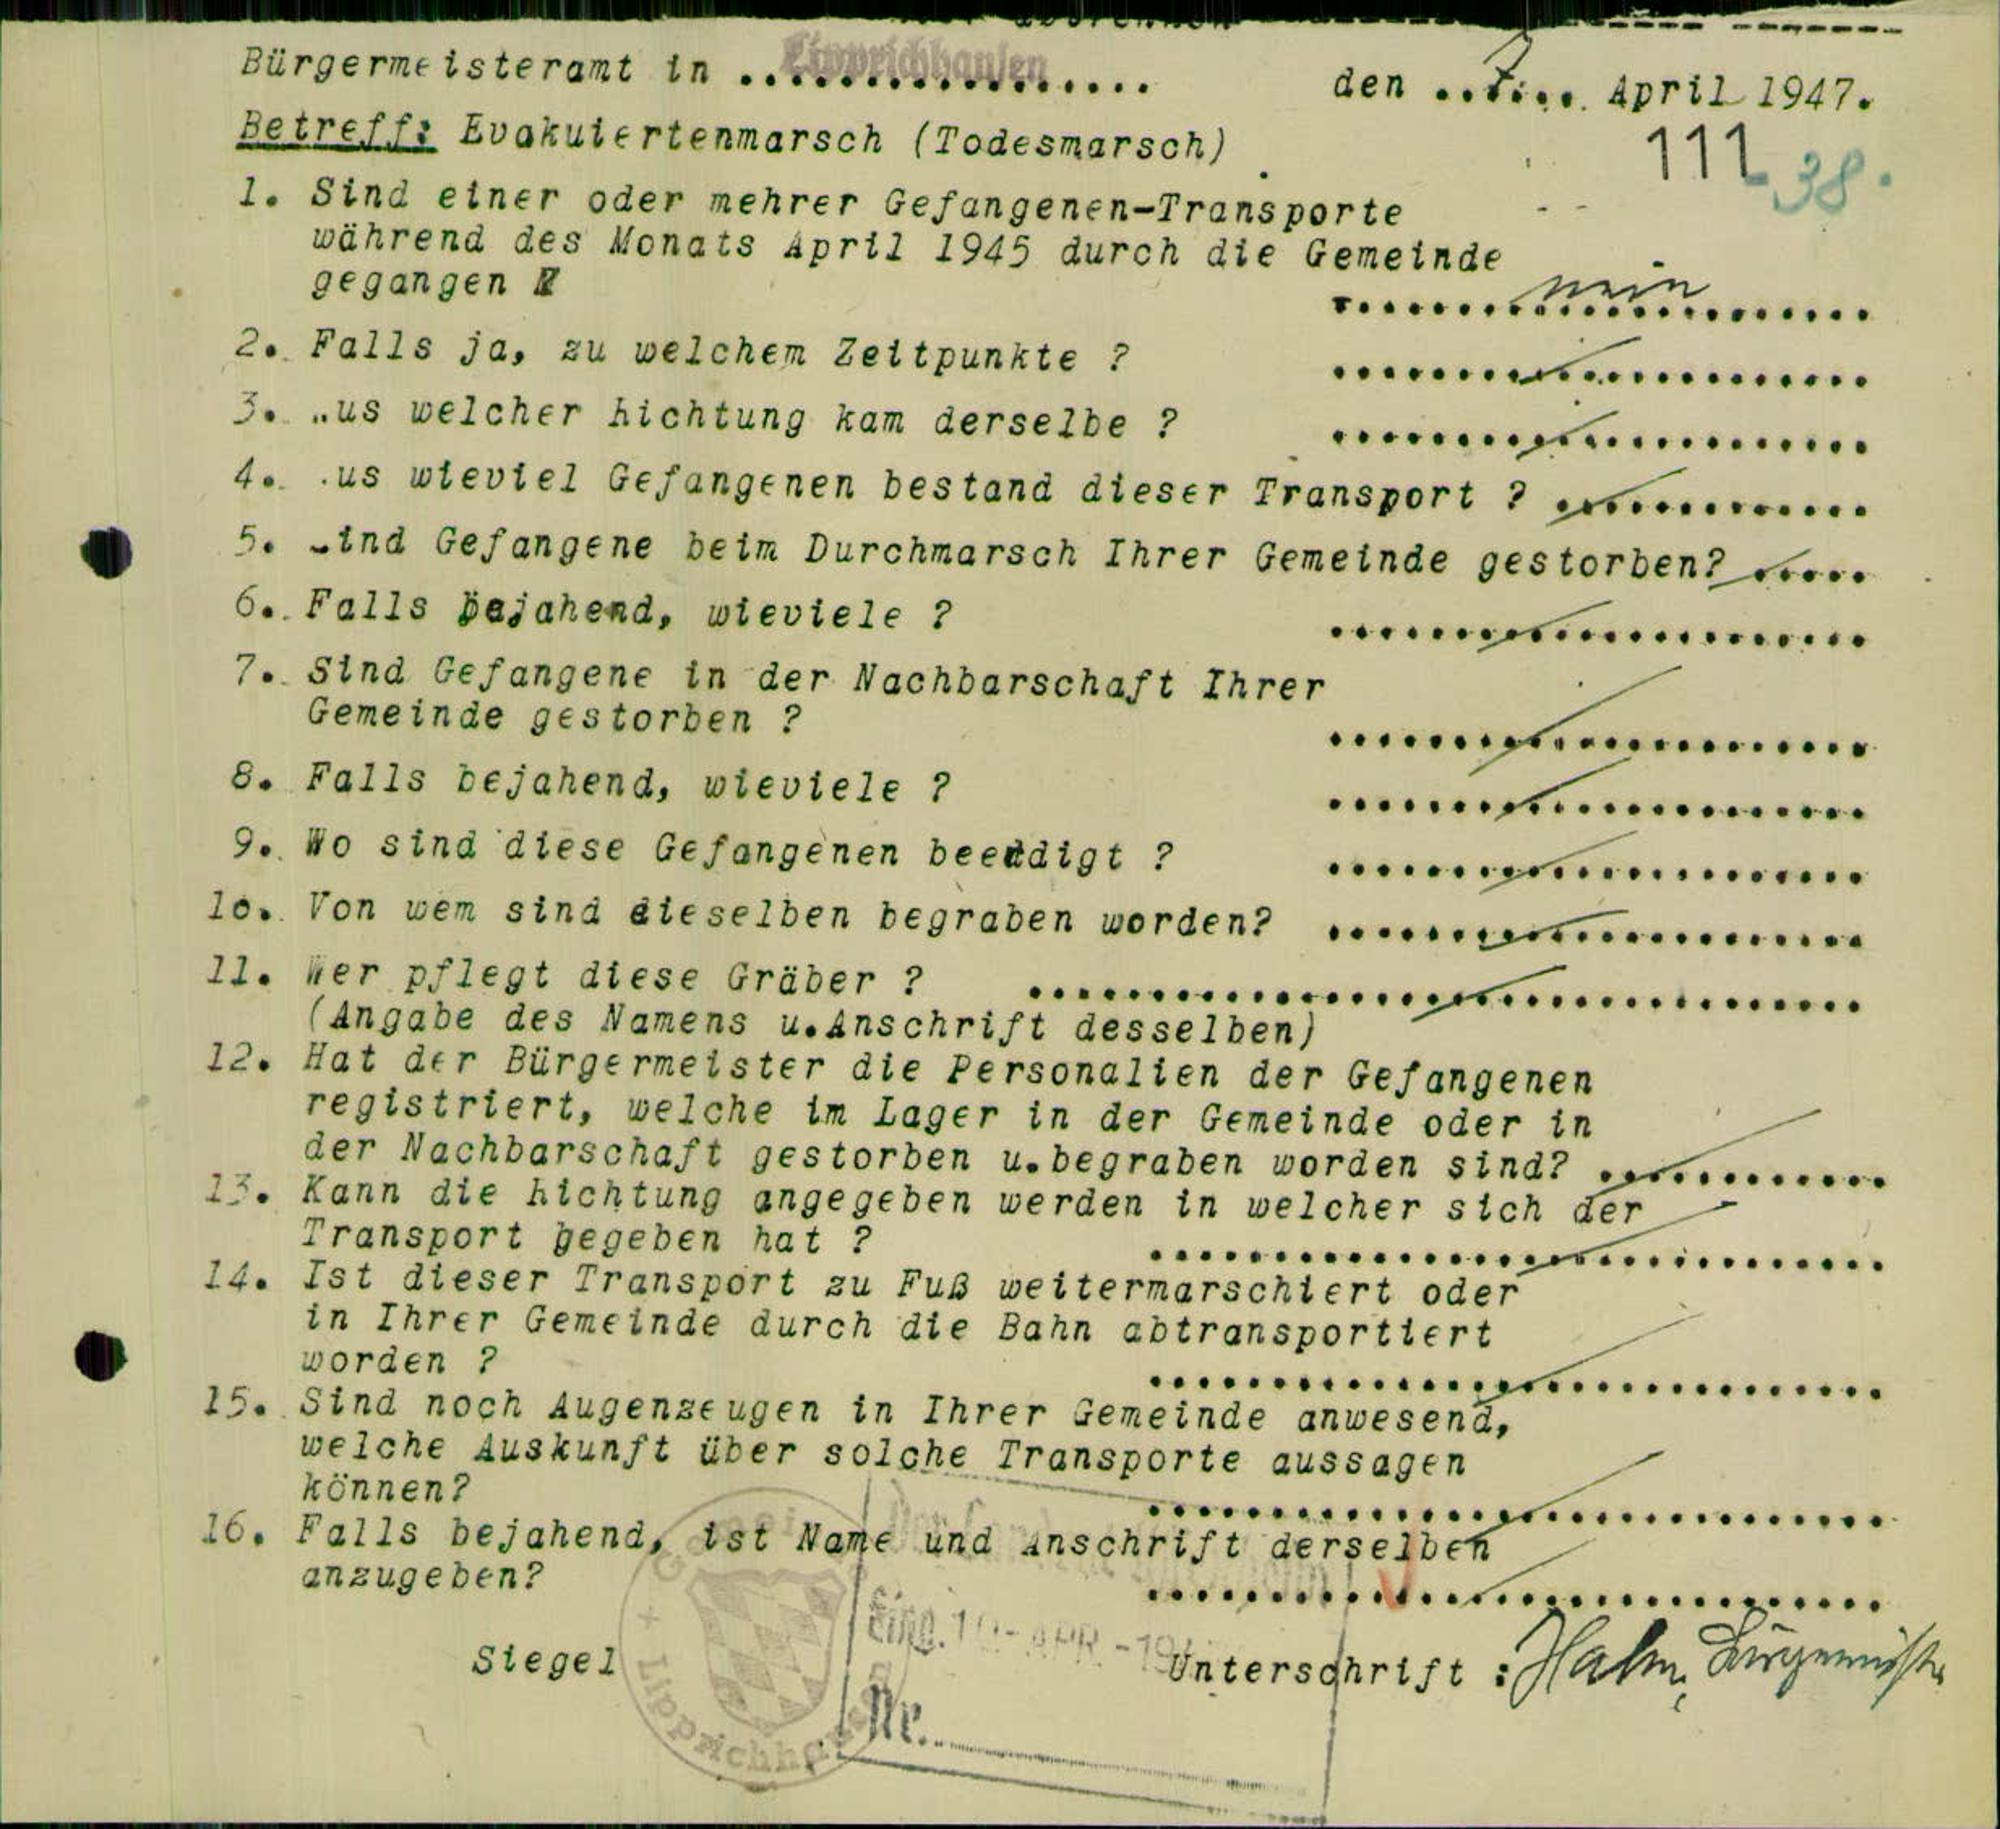 abtrennen
Bürgermeisteramt in Lipprichhausen den 7. April 1947.
Betreff: Evakuiertenmarsch (Todesmarsch)
111 38.
1. Sind einer oder mehrer Gefangenen-Transporte
während des Monats April 1945 durch die Gemeinde
gegangen ? nein
2. Falls ja, zu welchem Zeitpunkte ?
3. Aus welcher Richtung kam derselbe ?
4. Aus wieviel Gefangenen bestand dieser Transport ?
5. Sind Gefangene beim Durchmarsch Ihrer Gemeinde gestorben?
6. Falls bejahend, wieviele ?
7. Sind Gefangene in der Nachbarschaft Ihrer
Gemeinde gestorben ?
8. Falls bejahend, wieviele ?
9. Wo sind diese Gefangenen beerdigt ?
10. Von wem sind dieselben begraben worden?
11. Wer pflegt diese Gräber ?
(Angabe des Namens u.Anschrift desselben)
12. Hat der Bürgermeister die Personalien der Gefangenen
registriert, welche im Lager in der Gemeinde oder in
der Nachbarschaft gestorben u.begraben worden sind?
13. Kann die Richtung angegeben werden in welcher sich der
Transport begeben hat ?
14. Ist dieser Transport zu Fuß weitermarschiert oder
in Ihrer Gemeinde durch die Bahn abtransportiert
worden ?
15. Sind noch Augenzeugen in Ihrer Gemeinde anwesend,
welche Auskunft über solche Transporte aussagen
können?
16. Falls bejahend, ist Name und Anschrift derselben
anzugeben?
Eing. 10. APR. 194
Siegel
Unterschrift : Hahn, Bürgermeister
Gemeinde Lipprichhausen
Nr.